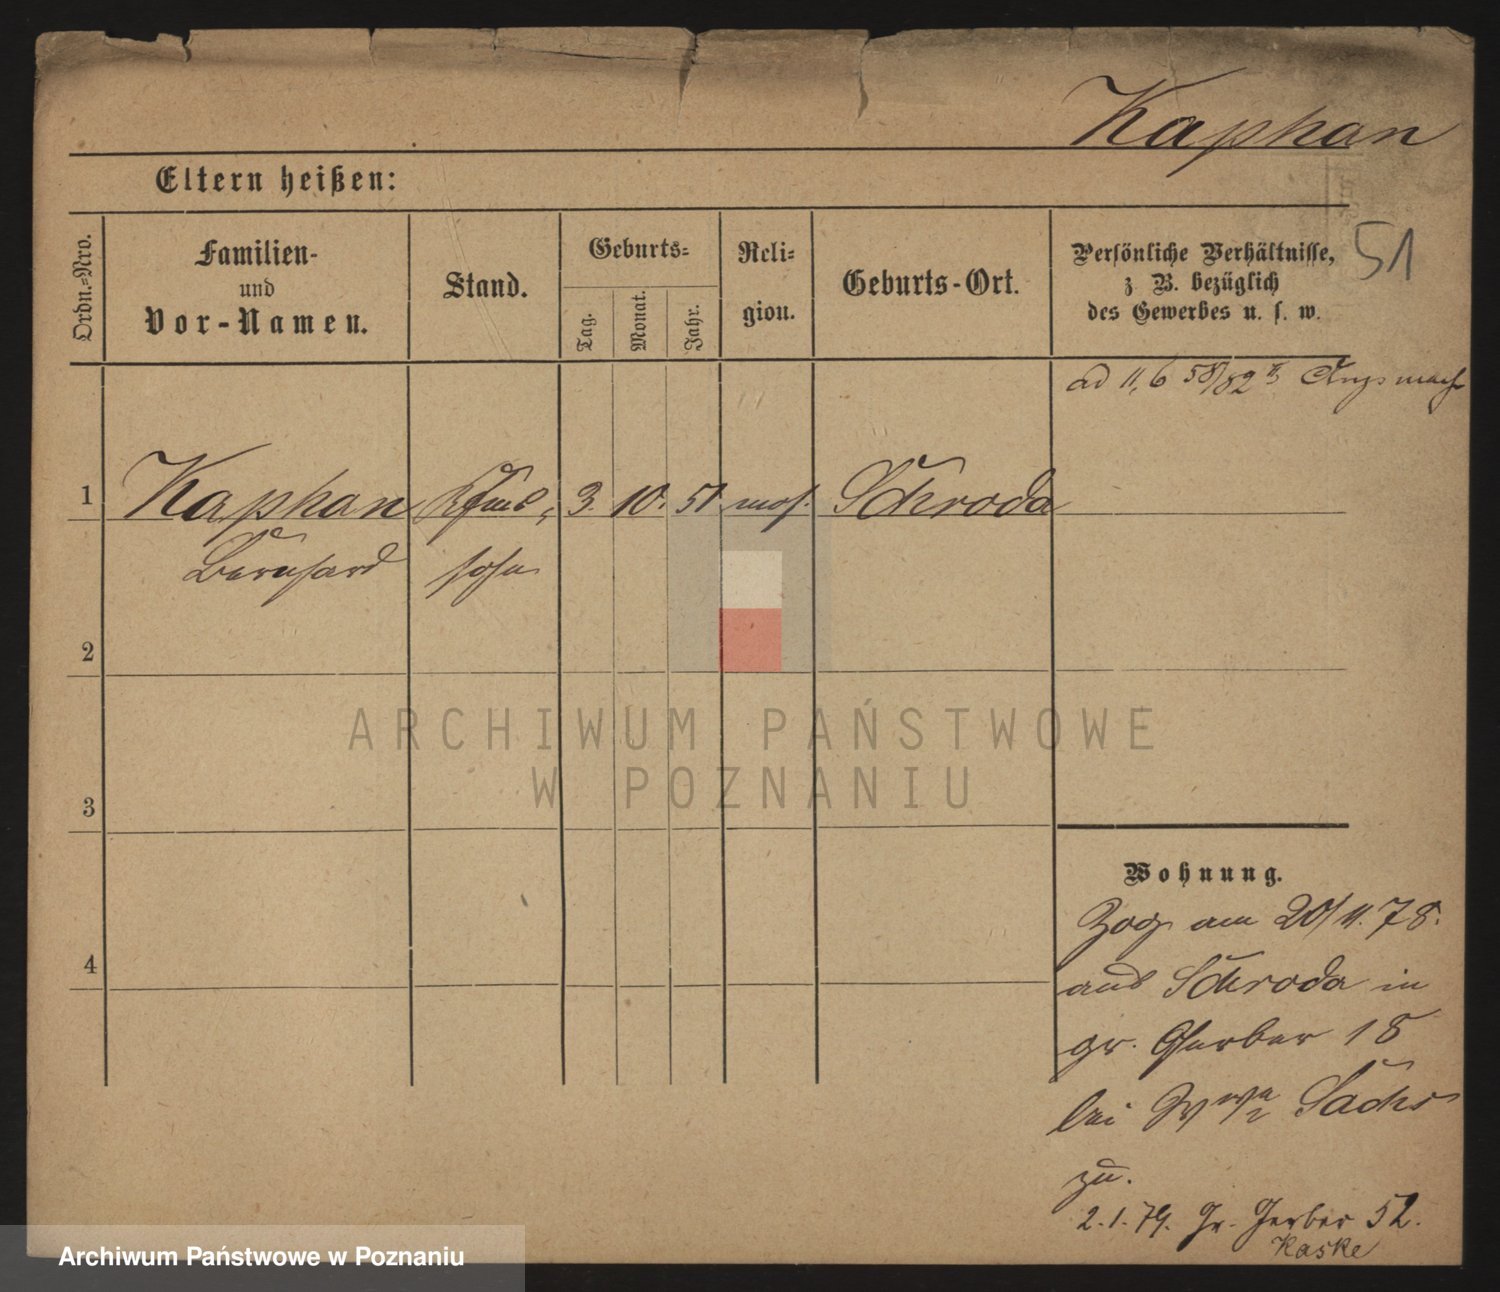 Kaphan
Eltern heißen:
Ordn.-Nro.
Familien-
und
Vor-Namen.
Stand.
Geburts-
Tag.
Monat.
Jahr.
Reli-
gion.
Geburts-Ort.
Persönliche Verhältnisse,
z B. bezüglich
des Gewerbes u. s. w.
51
ad 11, 6 58/82
1
Kaphan
Kfms
3. 10. 51
mos.
Schroda
Bernhard
sohn
2
3
4
ARCHIWUM PAŃSTWOWE
W POZNANIU
Wohnung.
Zog am 20/11.78.
aus Schroda in
gr. Gerber 18
bei Wwe Sachs
zu.
2.1.79. Gr. Gerber 52.
Kaske
Archiwum Państwowe w Poznaniu